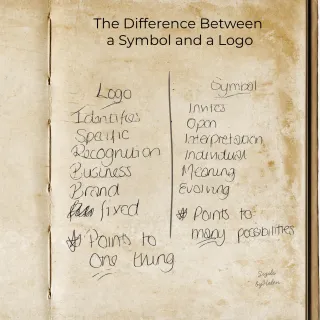 The Difference Between
a Symbol and a Logo
Logo
Identifies
Specific
Recognition
Business
Brand
fixed
* Points to
one thing
Symbol
Invites
Open
Interpretation
Individual
Meaning
Evolving
* Points to
many possibilities